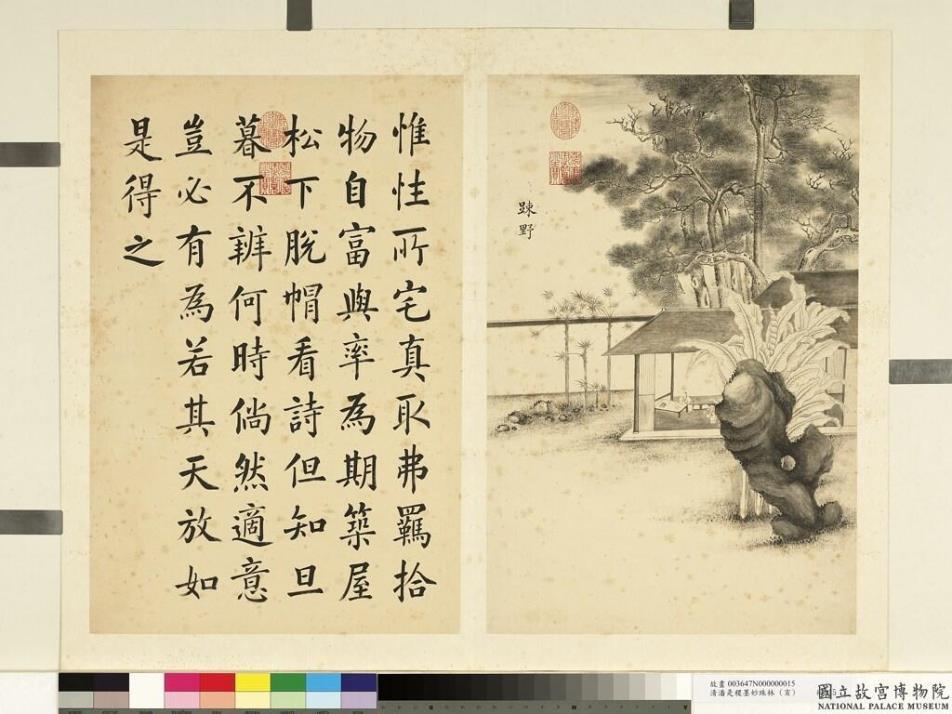 踈野
惟性所宅真取弗羈拾
物自富與率為期築屋
松下脫帽看詩但知旦
暮不辨何時倘然適意
豈必有為若其天放如
是得之
故畫 003647N000000015
清潘是稷墨妙珠林（寅）
國立故宮博物院
NATIONAL PALACE MUSEUM